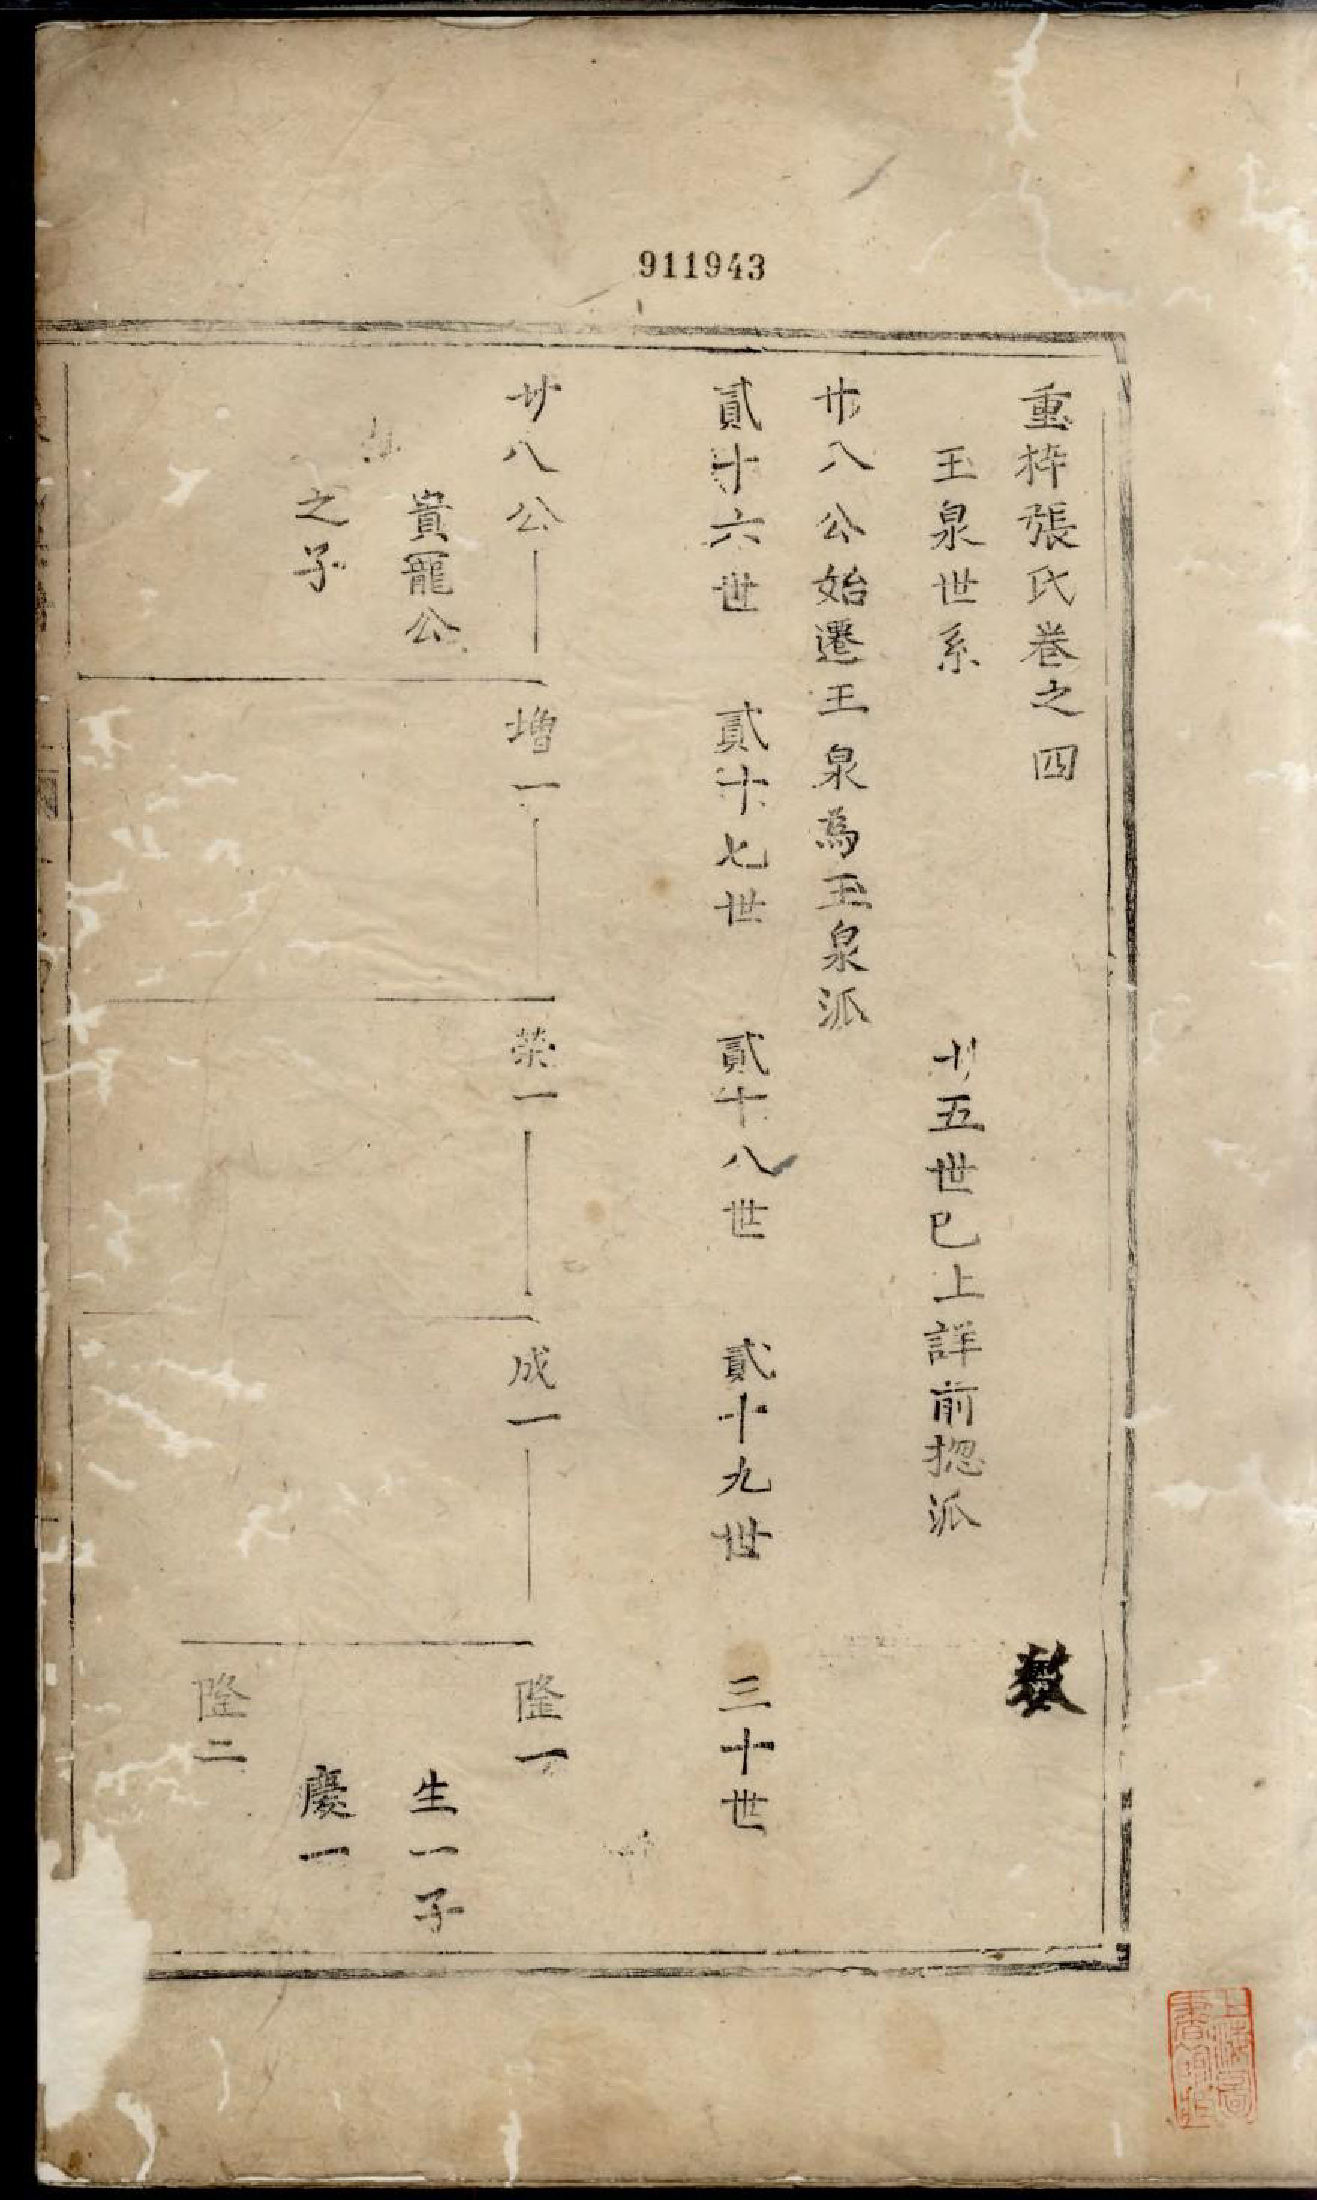 911943
重梓張氏卷之四
數
玉泉世系
廿五世已上詳前揔派
廿八公始遷王泉為玉泉派
貳十六世
貳十七世
貳十八世
貳十九世
三十世
廿八公
增一
荣一
成一
隆一
貴寵公
生一子
之子
慶一
隆二
上海圖書館藏